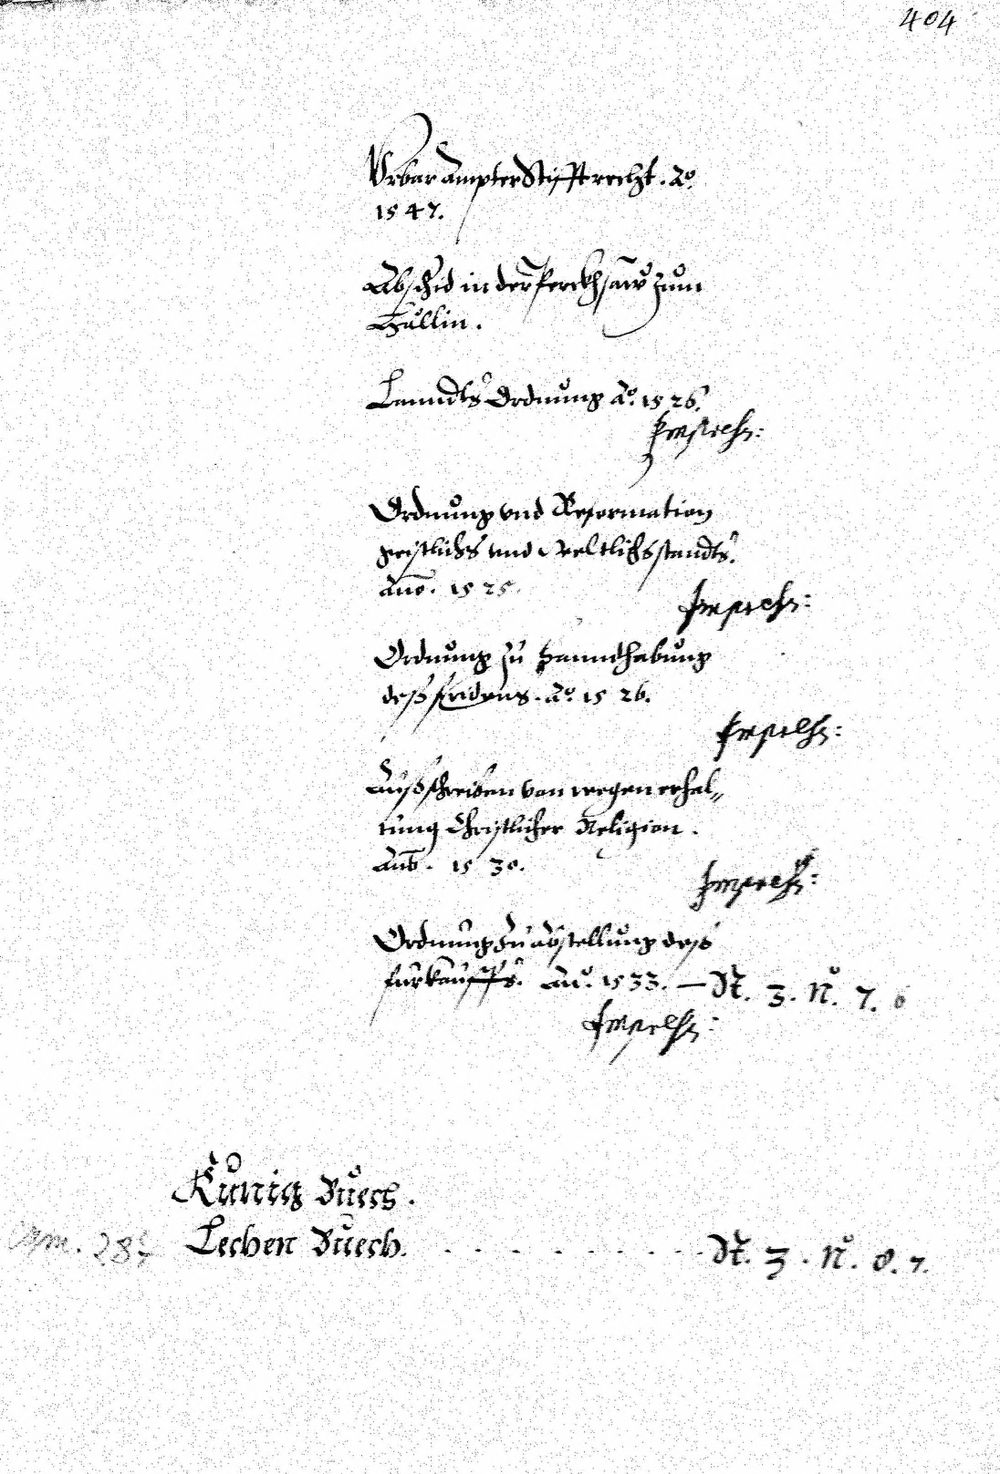 404
Vrbar ämpter Stifftrecht. Ao.
1547.
Abschid in der Perckhsaw zum
Hällin.
Lanndts Ordnung Ao. 1526.
Impress:
Ordnung vnd Reformation
geistlichs vnd weltlichs standts.
Anno. 1525.
Impress:
Ordnung zu hanndthabung
deß fridens. Ao. 1526.
Impress:
Außschreiben von wegen erhal„
tung Christlicher Religion.
Anno. 1530.
Impress:
Ordnung zu abstellung deß
fürkauffs. Ano. 1533. — St. 3. No. 7. 6
Impress:
Künig Buech.
Cgm. 28
Lechen Buech. . . . . . . . . . St. 3. No. 8. 7.